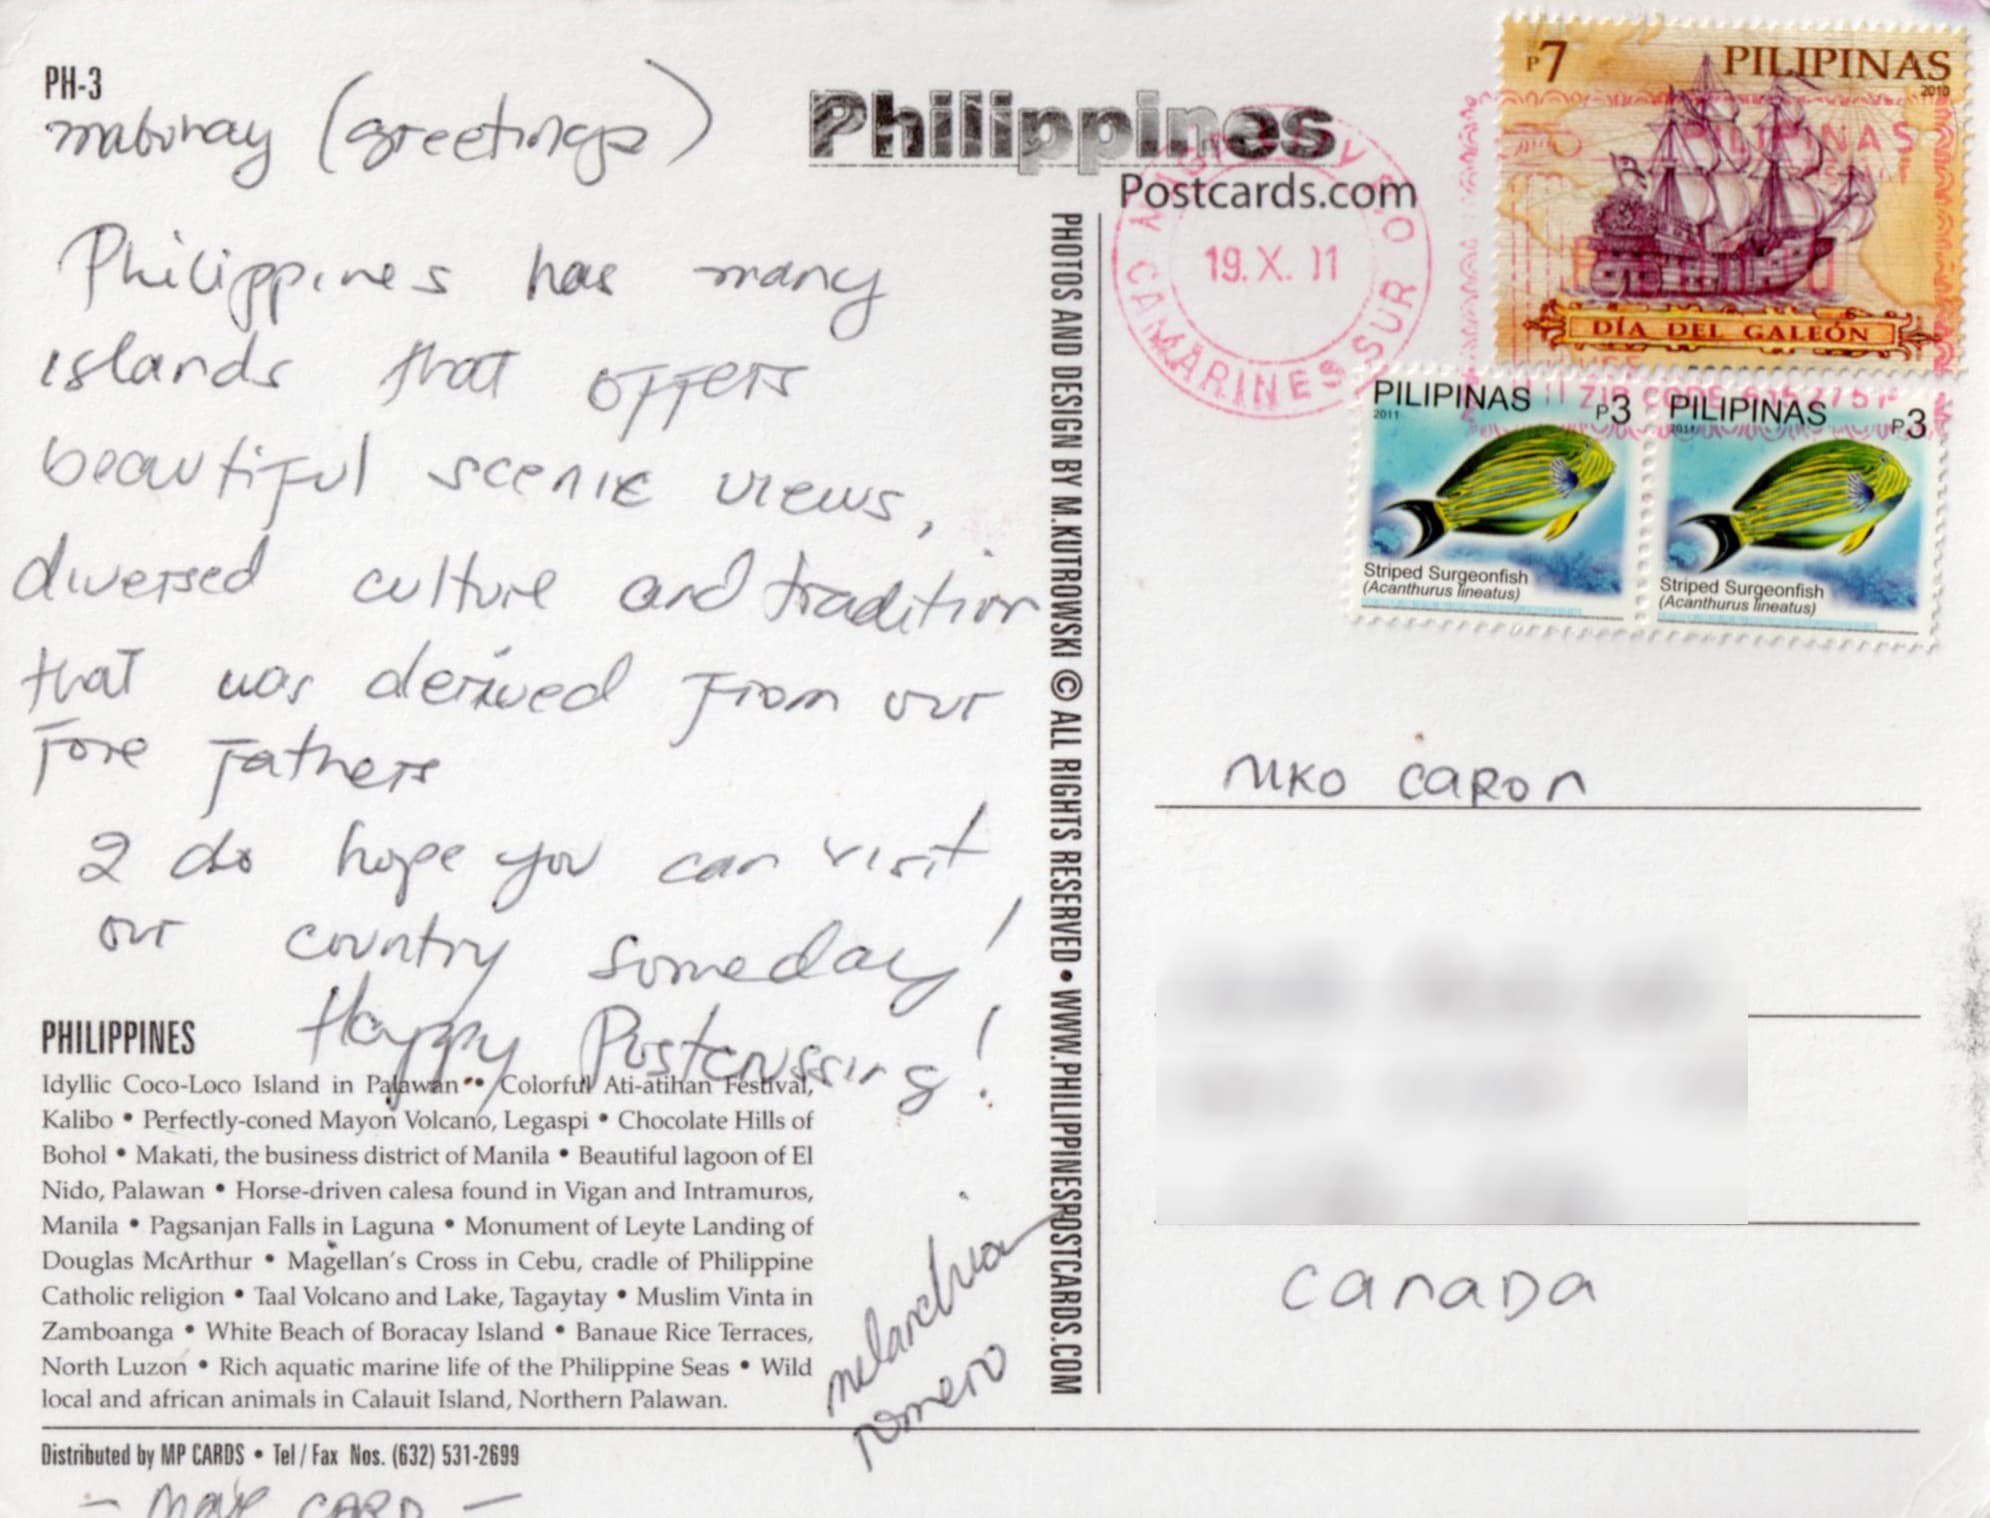 PH-3
mabuhay (greetings)
Philippines has many
islands that offers
beautiful scenic views,
diversed culture and tradition
that was derived from our
fore fathers
I do hope you can visit
our country someday!
Happy Postcrossing!
PHILIPPINES
Idyllic Coco-Loco Island in Palawan • Colorful Ati-atihan Festival,
Kalibo • Perfectly-coned Mayon Volcano, Legaspi • Chocolate Hills of
Bohol • Makati, the business district of Manila • Beautiful lagoon of El
Nido, Palawan • Horse-driven calesa found in Vigan and Intramuros,
Manila • Pagsanjan Falls in Laguna • Monument of Leyte Landing of
Douglas McArthur • Magellan's Cross in Cebu, cradle of Philippine
Catholic religion • Taal Volcano and Lake, Tagaytay • Muslim Vinta in
Zamboanga • White Beach of Boracay Island • Banaue Rice Terraces,
North Luzon • Rich aquatic marine life of the Philippine Seas • Wild
local and african animals in Calauit Island, Northern Palawan.
romero
Distributed by MP CARDS • Tel / Fax Nos. (632) 531-2699
CARD -
Philippines
Postcards.com
PHOTOS AND DESIGN BY M.KUTROWSKI © ALL RIGHTS RESERVED • WWW.PHILIPPINESPOSTCARDS.COM
CAMARINES SUR
19. X. 11
P7 PILIPINAS
2010
DÍA DEL GALEÓN
PILIPINAS P3
2011
Striped Surgeonfish
(Acanthurus lineatus)
PILIPINAS P3
2011
Striped Surgeonfish
(Acanthurus lineatus)
PILIPINAS
ZIP CODE
NIKO CARON
CANADA